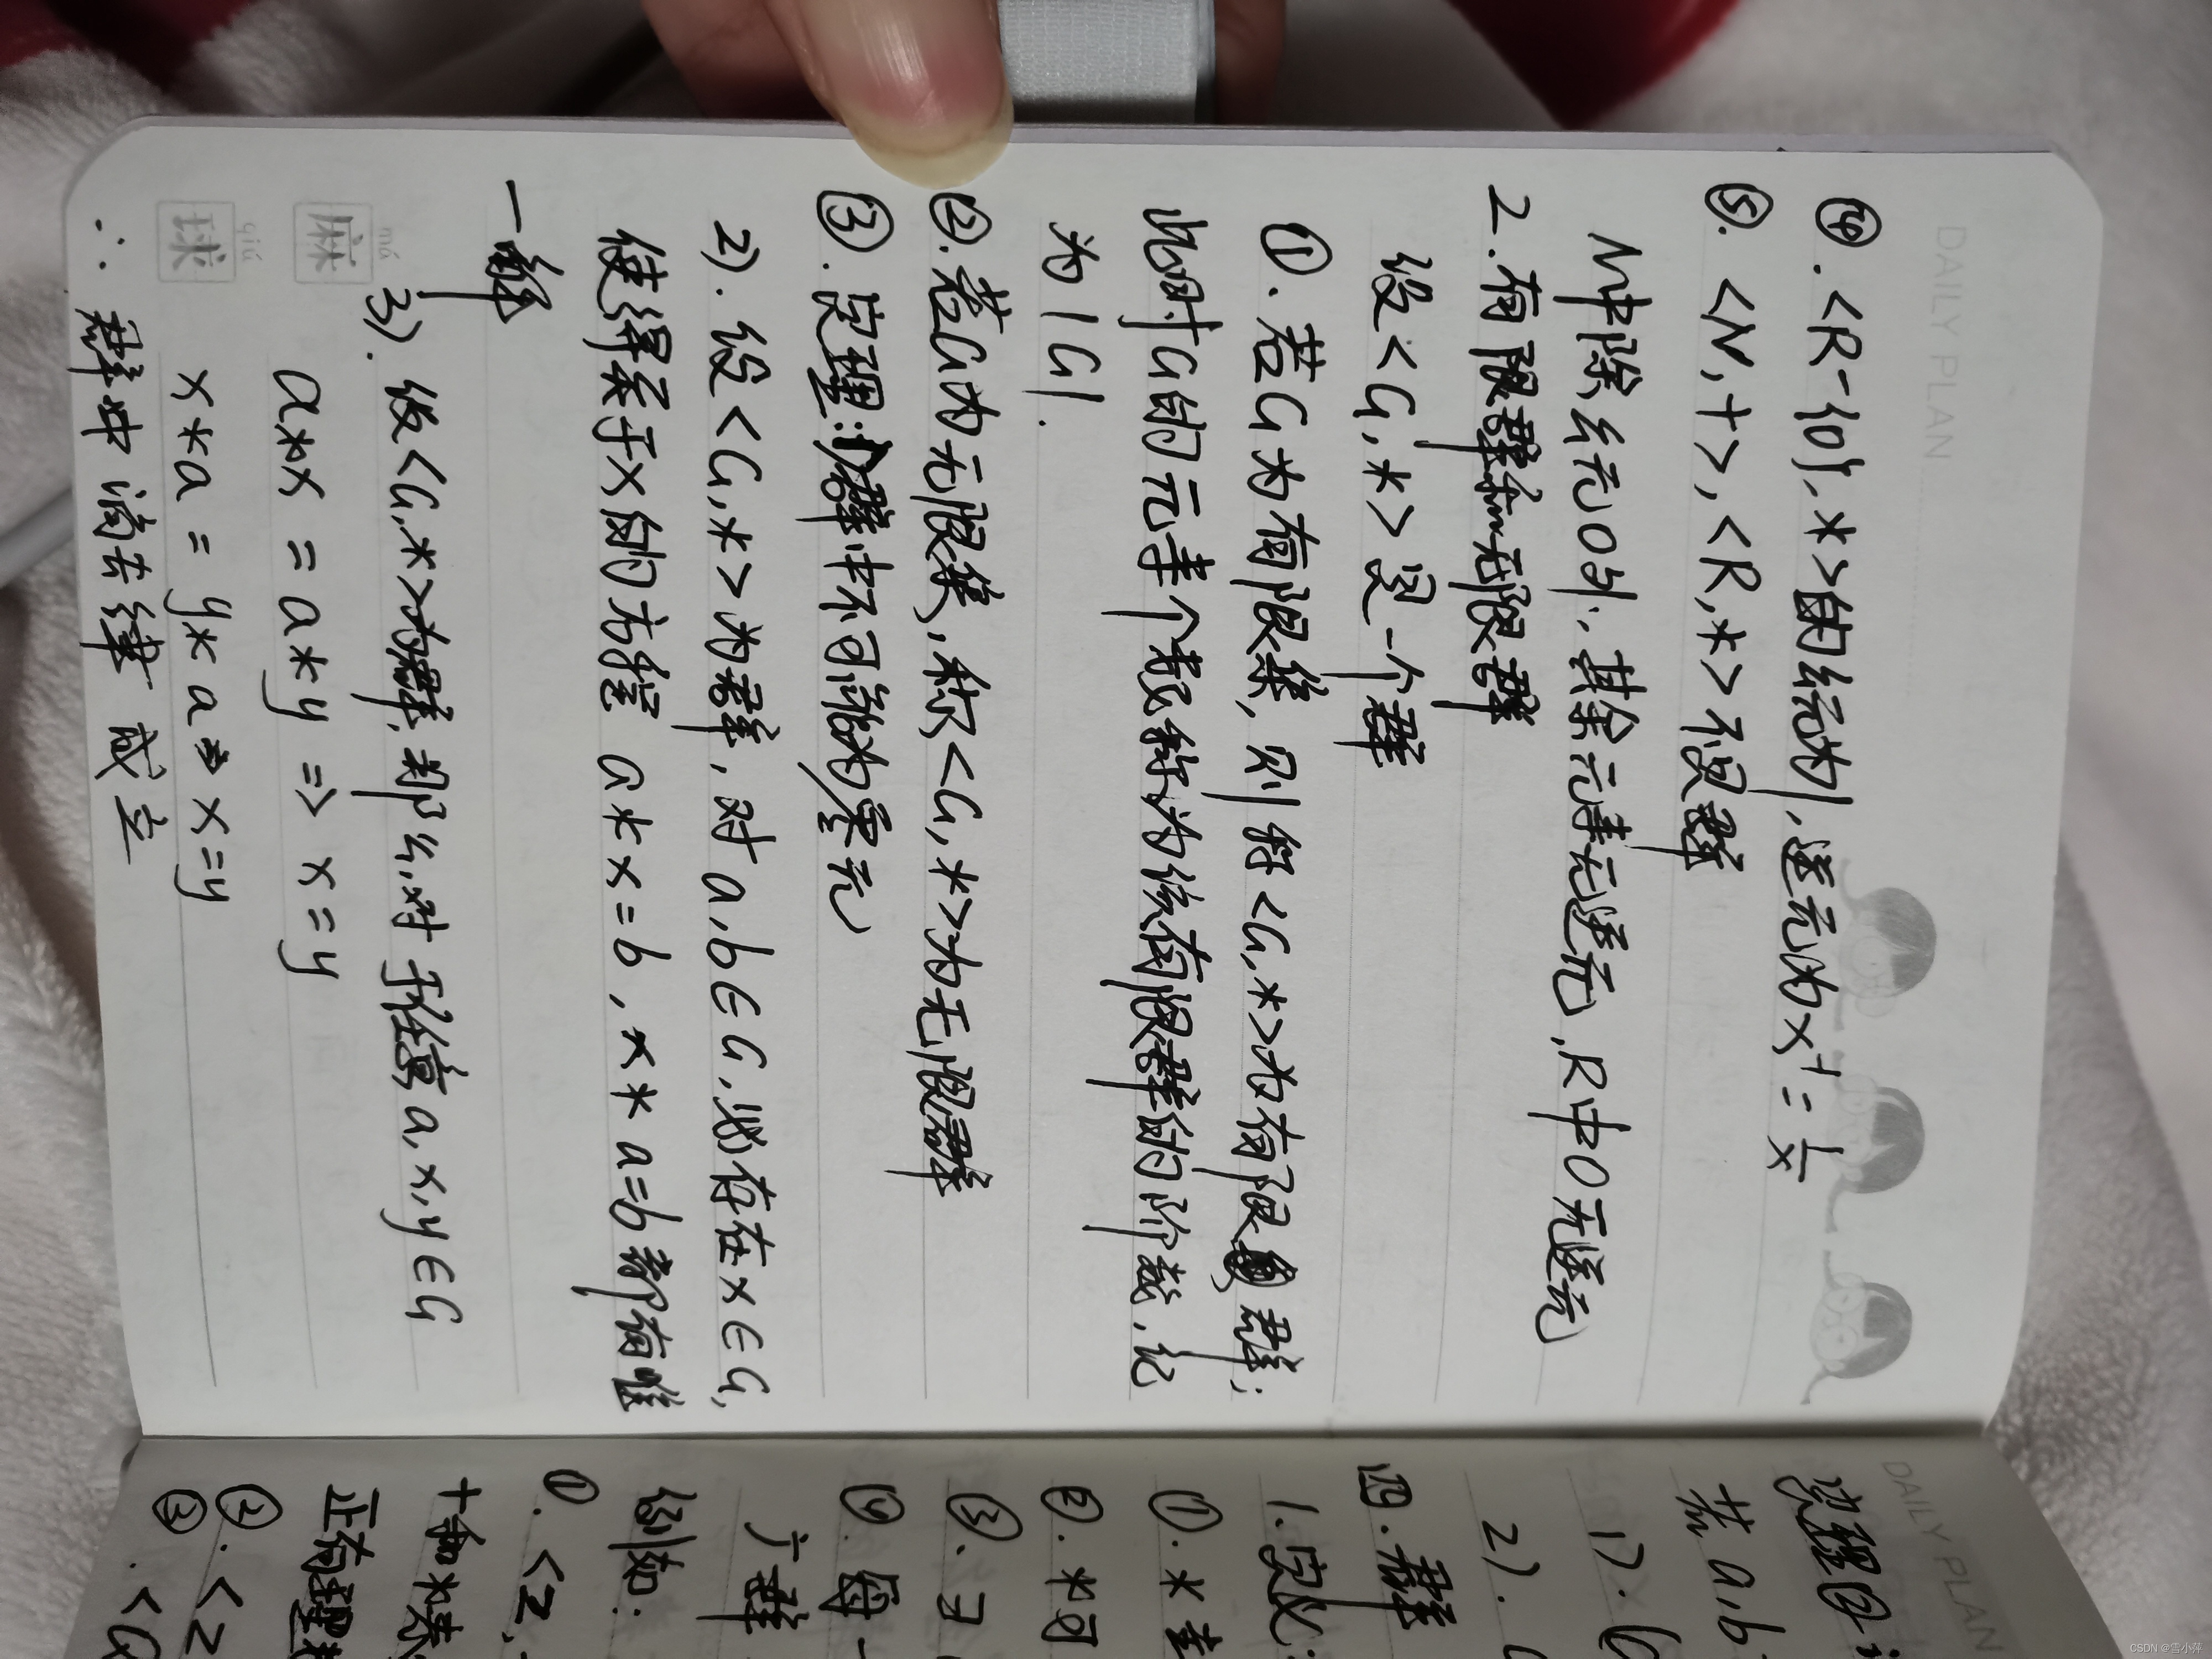 DAILY PLAN
④.<R-{0},*>的幺元为1,逆元为x⁻¹=1/x
⑤.<N,+>,<R,*>不是群
N中除幺元0外,其余元素无逆元,R中0无逆元
2.有限群和无限群
设<G,*>是一个群
①.若G为有限集,则称<G,*>为有限群;
此时G的元素个数称为该有限群的阶数,记
为|G|.
②.若G为无限集,称<G,*>为无限群
③.定理:1)群中不可能有零元
2).设<G,*>为群,对a,b∈G,必存在x∈G,
使得关于x的方程 a*x=b,x*a=b都有唯
一解
3).设<G,*>为群,那么,对于任意a,x,y∈G
a*x=a*y=>x=y
x*a=y*a=>x=y
∴群中消去律成立
má
麻
qiú
球
DAILY PLAN
定理②
若a,b
1).
2).
四.群
1.定义:
①.*
②.*可
③.∃
④.每一
广群
例如:
①.<Z,
+和*
正有理
②.<Z
③.<Q
CSDN @雪小萍